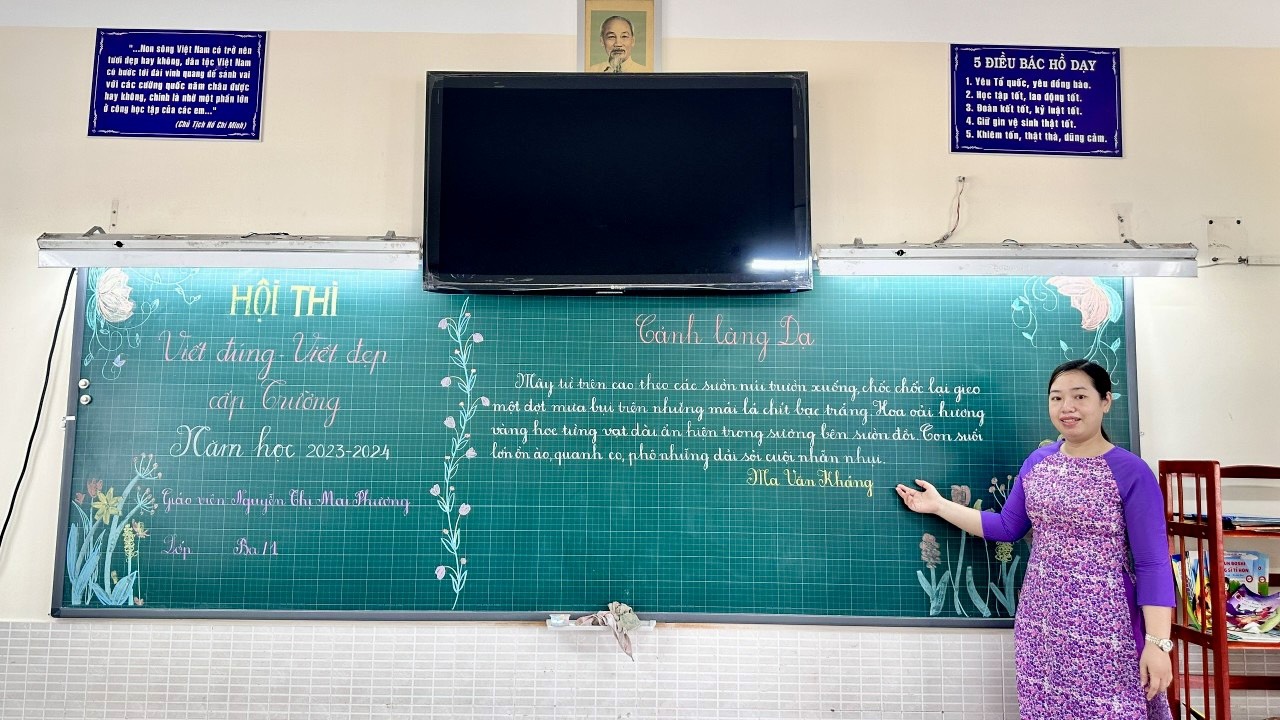 "...Non sông Việt Nam có trở nên
tươi đẹp hay không, dân tộc Việt Nam
có bước tới đài vinh quang để sánh vai
với các cường quốc năm châu được
hay không, chính là nhờ một phần lớn
ở công học tập của các em..."
(Chủ Tịch Hồ Chí Minh)
5 ĐIỀU BÁC HỒ DẠY
1. Yêu Tổ quốc, yêu đồng bào.
2. Học tập tốt, lao động tốt.
3. Đoàn kết tốt, kỷ luật tốt.
4. Giữ gìn vệ sinh thật tốt.
5. Khiêm tốn, thật thà, dũng cảm.
HỘI THI
Viết đúng - Viết đẹp
cấp Trường
Năm học 2023-2024
Giáo viên Nguyễn Thị Mai Phương
Lớp Ba/1
Cảnh làng Dạ
Mây từ trên cao theo các sườn núi trườn xuống, chốc chốc lại gieo
một đợt mưa bụi trên những mái lá chít bạc trắng. Hoa cải hương
vàng hoe từng vạt dâu ẩn hiện trong sương bên sườn đồi. Con suối
lớn ồn ào, quanh co, phô những dải sỏi cuội nhẵn nhụi.
Ma Văn Kháng